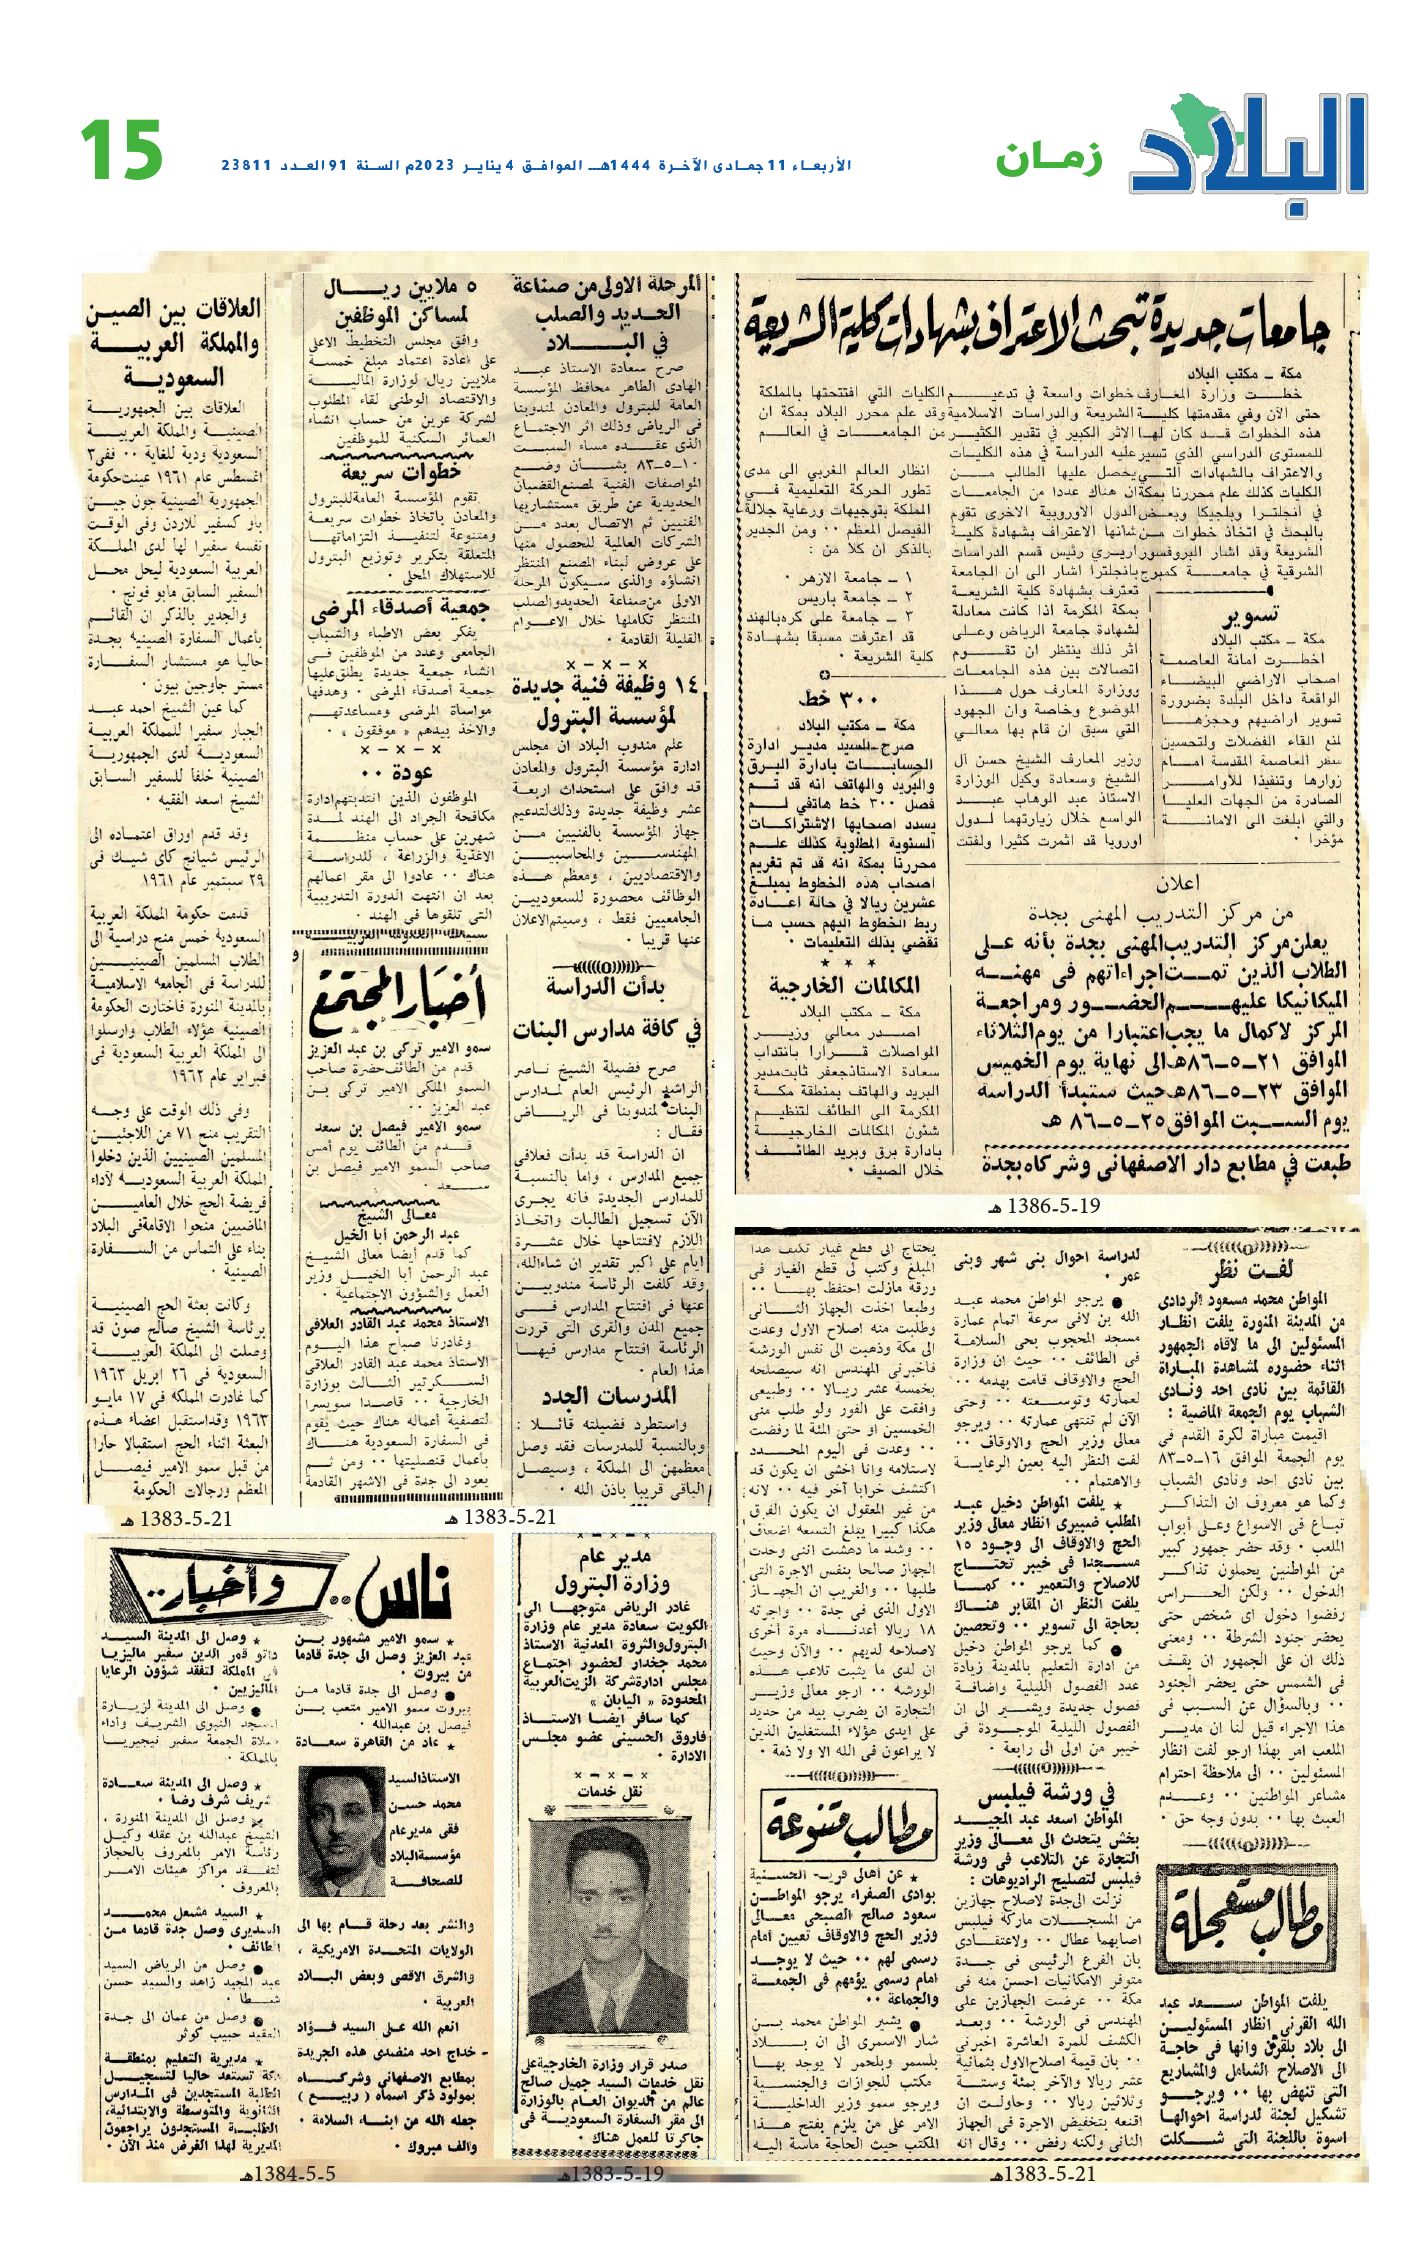 البلاد
زمان
الأربعاء 11 جمادى الآخرة 1444هـ الموافق 4 يناير 2023م السنة 91 العدد 23811
15
جامعات جديدة تبحث الاعتراف بشهادات كلية الشريعة
مكة ــ مكتب البلاد
تسوير
مكة ــ مكتب البلاد
اخطرت امانة العاصمة
اصحاب الاراضي البيضاء
الواقعة داخل البلدة بضرورة
تسوير اراضيهم وحجزها
لمنع القاء الفضلات ولتحسين
منظر العاصمة المقدسة امام
زوارها وتنفيذا للأوامر
الصادرة من الجهات العليا
والتي ابلغت الى الامانة
مؤخرا .
انظار العالم الغربي الى مدى
تطور الحركة التعليمية في
المملكة بتوجيهات ورعاية جلالة
الفيصل المعظم ٠٠ ومن الجدير
بالذكر ان كلا من :
١ ــ جامعة الازهر .
٢ ــ جامعة باريس
٣ ــ جامعة على كره بالهند
قد اعترفت مسبقا بشهادة
كلية الشريعة .
٣٠٠ خط
مكة ــ مكتب البلاد
صرح السيد مدير ادارة
الحسابات بادارة البرق
والبريد والهاتف انه قد تم
فصل ٣٠٠ خط هاتفي لم
يسدد اصحابها الاشتراكات
السنوية المطلوبة كذلك علم
محررنا بمكة انه قد تم تغريم
اصحاب هذه الخطوط بمبلغ
عشرين ريالا في حالة اعادة
ربط الخطوط اليهم حسب ما
تقضي بذلك التعليمات .
المكالمات الخارجية
مكة ــ مكتب البلاد
اصدر معالي وزير
المواصلات قرارا بانتداب
سعادة الاستاذ جعفر ثابت مدير
البريد والهاتف بمنطقة مكة
المكرمة الى الطائف لتنظيم
شئون المكالمات الخارجية
بادارة برق وبريد الطائف
خلال الصيف .
اعلان
من مركز التدريب المهنى بجدة
يعلن مركز التدريب المهنى بجدة بأنه على
الطلاب الذين تمت اجراءاتهم فى مهنه
الميكانيكا عليهم الحضور ومراجعة
المركز لاكمال ما يجب اعتبارا من يوم الثلاثاء
الموافق ٢١ــ٥ــ٨٦هـ الى نهاية يوم الخميس
الموافق ٢٣ــ٥ــ٨٦هـ حيث ستبدأ الدراسه
يوم السبت الموافق ٢٥ــ٥ــ٨٦ هـ
طبعت في مطابع دار الاصفهانى وشركاه بجدة
19-5-1386 هـ
المرحلة الاولى من صناعة
الحديد والصلب
في البلاد
صرح سعادة الاستاذ عبد
الهادى الطاهر محافظ المؤسسة
العامة للبترول والمعادن لمندوبنا
فى الرياض وذلك اثر الاجتماع
الذى عقده مساء السبت
١٠ــ٥ــ٨٣ بشأن وضع
المواصفات الفنية لمصنع القضبان
الحديدية عن طريق مستشاريها
الفنيين ثم الاتصال بعدد من
الشركات العالمية للحصول منها
على عروض لبناء المصنع المنتظر
انشاؤه والذى سيكون المرحلة
الاولى من صناعة الحديد والصلب
المنتظر تكاملها خلال الاعوام
القليلة القادمة .
١٤ وظيفة فنية جديدة
لمؤسسة البترول
علم مندوب البلاد ان مجلس
ادارة مؤسسة البترول والمعادن
قد وافق على استحداث اربعة
عشر وظيفة جديدة وذلك لتدعيم
جهاز المؤسسة بالفنيين من
المهندسين والمحاسبين
والاقتصاديين ، ومعظم هذه
الوظائف محصورة للسعوديين
الجامعيين فقط ، وسيتم الاعلان
عنها قريبا .
بدأت الدراسة
في كافة مدارس البنات
صرح فضيلة الشيخ ناصر
الراشد الرئيس العام لمدارس
البنات لمندوبنا فى الرياض
فقال :
ان الدراسة قد بدأت فعلا فى
جميع المدارس ، واما بالنسبة
للمدارس الجديدة فانه يجرى
الآن تسجيل الطالبات واتخاذ
اللازم لافتتاحها خلال عشرة
ايام على اكبر تقدير ان شاءالله،
وقد كلفت الرئاسة مندوبين
عنها فى افتتاح المدارس فى
جميع المدن والقرى التى قررت
الرئاسة افتتاح مدارس فيها
هذا العام .
المدرسات الجدد
واستطرد فضيلته قائلا :
وبالنسبة للمدرسات فقد وصل
معظمهن الى المملكة ، وسيصل
الباقى قريبا باذن الله .
٥ ملايين ريال
لمساكن الموظفين
وافق مجلس التخطيط الاعلى
على اعادة اعتماد مبلغ خمسة
ملايين ريال لوزارة المالية
والاقتصاد الوطنى لقاء المطلوب
لشركة عرين من حساب انشاء
العمائر السكنية للموظفين
خطوات سريعة
تقوم المؤسسة العامة للبترول
والمعادن باتخاذ خطوات سريعة
ومتنوعة لتنفيذ التزاماتها
المتعلقة بتكرير وتوزيع البترول
للاستهلاك المحلى .
جمعية أصدقاء المرضى
يفكر بعض الاطباء والشباب
الجامعى وعدد من الموظفين فى
انشاء جمعية جديدة يطلق عليها
جمعية أصدقاء المرضى . وهدفها
مواساة المرضى ومساعدتهم
والاخذ بيدهم « موفقون » .
عودة ٠٠
الموظفون الذين انتدبتهم ادارة
مكافحة الجراد الى الهند لمدة
شهرين على حساب منظمة
الاغذية والزراعة ، للدراسة
هناك ٠٠ عادوا الى مقر اعمالهم
بعد ان انتهت الدورة التدريبية
التى تلقوها فى الهند .
أخبار المجتمع
سمو الامير تركى بن عبد العزيز
قدم من الطائف حضرة صاحب
السمو الملكى الامير تركى بن
عبد العزيز ٠٠
سمو الامير فيصل بن سعد
قدم من الطائف يوم أمس
صاحب السمو الامير فيصل بن
سعد .
معالى الشيخ
عبد الرحمن أبا الخيل
كما قدم أيضا معالى الشيخ
عبد الرحمن أبا الخيل وزير
العمل والشؤون الاجتماعية .
الاستاذ محمد عبد القادر العلاقى
وغادرنا صباح هذا اليوم
الاستاذ محمد عبد القادر العلاقى
السكرتير الثالث بوزارة
الخارجية ٠٠ قاصدا سويسرا
لتصفية أعماله هناك حيث يقوم
فى السفارة السعودية هناك
بأعمال قنصليتها ٠٠ ومن ثم
يعود الى جدة فى الاشهر القادمة
21-5-1383 هـ
العلاقات بين الصين
والمملكة العربية
السعودية
العلاقات بين الجمهورية
الصينية والمملكة العربية
السعودية ودية للغاية ٠٠ ففى ٣
اغسطس عام ١٩٦١ عينت حكومة
الجمهورية الصينية جون جين
باو كسفير للاردن وفى الوقت
نفسه سفيرا لها لدى المملكة
العربية السعودية ليحل محل
السفير السابق مابو فونج .
والجدير بالذكر ان القائم
بأعمال السفارة الصينية بجدة
حاليا هو مستشار السفارة
مستر جاوجين بيون .
كما عين الشيخ احمد عبد
الجبار سفيرا للمملكة العربية
السعودية لدى الجمهورية
الصينية خلفا للسفير السابق
الشيخ اسعد الفقيه .
وقد قدم اوراق اعتماده الى
الرئيس شيانج كاى شيك فى
٢٩ سبتمبر عام ١٩٦١
قدمت حكومة المملكة العربية
السعودية خمس منح دراسية الى
الطلاب المسلمين الصينيين
للدراسة فى الجامعه الاسلامية
بالمدينة المنورة فاختارت الحكومة
الصينية هؤلاء الطلاب وارسلوا
الى المملكة العربية السعودية فى
فبراير عام ١٩٦٢
وفى ذلك الوقت على وجه
التقريب منح ٧١ من اللاجئين
المسلمين الصينيين الذين دخلوا
المملكة العربية السعودية لآداء
فريضة الحج خلال العامين
الماضيين منحوا الاقامة فى البلاد
بناء على التماس من السفارة
الصينية .
وكانت بعثة الحج الصينية
برئاسة الشيخ صالح صون قد
وصلت الى المملكة العربية
السعودية فى ٢٦ ابريل ١٩٦٣
كما غادرت المملكة فى ١٧ مايو
١٩٦٣ وقد استقبل اعضاء هذه
البعثة اثناء الحج استقبالا حارا
من قبل سمو الامير فيصل
المعظم ورجالات الحكومة
21-5-1383 هـ
لفت نظر
المواطن محمد مسعود الردادى
من المدينة المنورة يلفت انظار
المسئولين الى ما لاقاه الجمهور
اثناء حضوره لمشاهدة المباراة
القائمة بين نادى احد ونادى
الشباب يوم الجمعة الماضية :
اقيمت مباراة لكرة القدم فى
يوم الجمعة الموافق ١٦ــ٥ــ٨٣
بين نادى احد ونادى الشباب
وكما هو معروف ان التذاكر
تباع فى الاسواع وعلى أبواب
الملعب . وقد حضر جمهور كبير
من المواطنين يحملون تذاكر
الدخول ٠٠ ولكن الحراس
رفضوا دخول اى شخص حتى
يحضر جنود الشرطة ٠٠ ومعنى
ذلك ان على الجمهور ان يقف
فى الشمس حتى يحضر الجنود
٠٠ وبالسؤال عن السبب فى
هذا الاجراء قيل لنا ان مدير
الملعب امر بهذا ارجو لفت انظار
المسئولين ٠٠ الى ملاحظة احترام
مشاعر المواطنين ٠٠ وعدم
العبث بها ٠٠ بدون وجه حق .
مطالب مستعجلة
يلفت المواطن سعد عبد
الله القرنى انظار المسئولين
الى بلاد بلقرن وانها فى حاجة
الى الاصلاح الشامل والمشاريع
التى تنهض بها ٠٠ ويرجو
تشكيل لجنة لدراسة احوالها
اسوة باللجنة التى شكلت
لدراسة احوال بنى شهر وبنى
عمر .
يرجو المواطن محمد عبد
الله بن لافى سرعة اتمام عمارة
مسجد المحجوب بحى السلامة
فى الطائف ٠٠ حيث ان وزارة
الحج والاوقاف قامت بهدمه ٠٠
لعمارته وتوسعته ٠٠ وحتى
الآن لم تنتهى عمارته ٠٠ ويرجو
معالى وزير الحج والاوقاف ٠٠
لفت النظر اليه بعين الرعاية
والاهتمام ٠٠
★ يلفت المواطن دخيل عبد
المطلب ضبيرى انظار معالى وزير
الحج والاوقاف الى وجود ١٥
مسجدا فى خيبر تحتاج
للاصلاح والتعمير ٠٠ كما
يلفت النظر ان المقابر هناك
بحاجة الى تسوير ٠٠ وتحصين
كما يرجو المواطن دخيل
من ادارة التعليم بالمدينة زيادة
عدد الفصول الليلية واضافة
فصول جديدة ويشير الى ان
الفصول الليلية الموجودة فى
خيبر من اولى الى رابعة .
في ورشة فيلبس
المواطن اسعد عبد المجيد
بخش يتحدث الى معالى وزير
التجارة عن التلاعب فى ورشة
فيلبس لتصليح الراديوهات :
نزلت الى جدة لاصلاح جهازين
من المسجلات ماركة فيلبس
اصابهما عطال ٠٠ ولاعتقادى
بان الفرع الرئيسى فى جدة
متوفر الامكانيات احسن منه فى
مكة ٠٠ عرضت الجهازين على
المهندس فى الورشة ٠٠ وبعد
الكشف للمرة العاشرة اخبرنى
٠٠ بان قيمة اصلاح الاول بثمانية
عشر ريالا والآخر بمئة وستة
وثلاثين ريالا ٠٠ وحاولت ان
اقنعه بتخفيض الاجرة فى الجهاز
الثانى ولكنه رفض ٠٠ وقال انه
يحتاج الى قطع غيار تكلف هذا
المبلغ وكتب لى قطع الغيار فى
ورقة مازلت احتفظ بها ٠٠
وطبعا اخذت الجهاز الثانى
وطلبت منه اصلاح الاول وعدت
الى مكة وذهبت الى نفس الورشة
فأخبرنى المهندس انه سيصلحه
بخمسة عشر ريالا ٠٠ وطبيعى
وافقت على الفور ولو طلب منى
الخمسين او حتى المئة لما رفضت
٠٠ وعدت فى اليوم المحدد
لاستلامه وانا اخشى ان يكون قد
اكتشف خرابا آخر فيه ٠٠ لانه
من غير المعقول ان يكون الفرق
هكذا كبيرا يبلغ التسعة اضعاف
٠٠ وشد ما دهشت اننى وجدت
الجهاز صالحا بنفس الاجرة التى
طلبها ٠٠ والغريب ان الجهاز
الاول الذى فى جدة ٠٠ واجرته
١٨ ريالا أعدناه مرة أخرى
لاصلاحه لديهم ٠٠ والآن وحيث
ان لدى ما يثبت تلاعب هذه
الورشه ٠٠ ارجو معالى وزير
التجارة ان يضرب بيد من حديد
على ايدى هؤلاء المستغلين الذين
لا يراعون فى الله الا ولا ذمة .
مطالب متنوعة
بوادى الصفراء يرجو المواطن
سعود صالح الصبحى معالى
وزير الحج والاوقاف تعيين أمام
رسمى لهم ٠٠ حيث لا يوجد
امام رسمى يؤمهم فى الجمعة
والجماعة ٠٠
يشير المواطن محمد بن
شار الاسمرى الى ان بلاد
بلسمر وبلحمر لا يوجد بها
مكتب للجوازات والجنسية
ويرجو سمو وزير الداخلية
الامر على من يلزم بفتح هذا
المكتب حيث الحاجة ماسة اليه
21-5-1383هـ
مدير عام
وزارة البترول
غادر الرياض متوجها الى
الكويت سعادة مدير عام وزارة
البترول والثروة المعدنية الاستاذ
محمد جخدار لحضور اجتماع
مجلس ادارة شركة الزيت العربية
المحدودة « اليابان »
كما سافر ايضا الاستاذ
فاروق الحسينى عضو مجلس
الادارة .
نقل خدمات
صدر قرار وزارة الخارجية على
نقل خدمات السيد جميل صالح
عالم من الديوان العام بالوزارة
الى مقر السفارة السعودية فى
جاكرتا للعمل هناك .
19-5-1383هـ
ناس.. وأخبار..
★ سمو الامير مشهور بن
عبد العزيز وصل الى جدة قادما
من بيروت .
وصل الى جدة قادما من
بيروت سمو الامير متعب بن
فيصل بن عبدالله .
★ عاد من القاهرة سعادة
الاستاذ السيد
محمد حسن
فقى مدير عام
مؤسسة البلاد
للصحافة
والنشر بعد رحلة قام بها الى
الولايات المتحدة الامريكية ،
والشرق الاقصى وبعض البلاد
العربية .
انعم الله على السيد فؤاد
خداج احد منضدى هذه الجريدة
بمطابع الاصفهانى وشركاه
بمولود ذكر اسماه ( ربيع )
جعله الله من ابناء السلامة .
والف مبروك .
★ وصل الى المدينة السيد
داتو قمر الدين سفير ماليزيا
فى المملكة لتفقد شؤون الرعايا
الماليزيين .
وصل الى المدينة لزيارة
المسجد النبوى الشريف وأداء
صلاة الجمعة سفير نيجيريا
بالمملكة .
★ وصل الى المدينة سعادة
شريف شرف رضا .
وصل الى المدينة المنورة ،
الشيخ عبدالله بن عقله وكيل
رئاسة الامر بالمعروف بالحجاز
لتفقد مراكز هيئات الامر
بالمعروف .
★ السيد مشعل محمد
السديرى وصل جدة قادما من
الطائف .
وصل من الرياض السيد
عبد المجيد زاهد والسيد حسن
شطا .
وصل من عمان الى جدة
العقيد حبيب كوثر
★ مديرية التعليم بمنطقة
مكة تستعد حاليا لتسجيل
الطلبة المستجدين فى المدارس
الثانوية والمتوسطة والابتدائية،
الطلبة المستجدون يراجعون
المديرية لهذا الغرض منذ الآن .
5-5-1384هـ